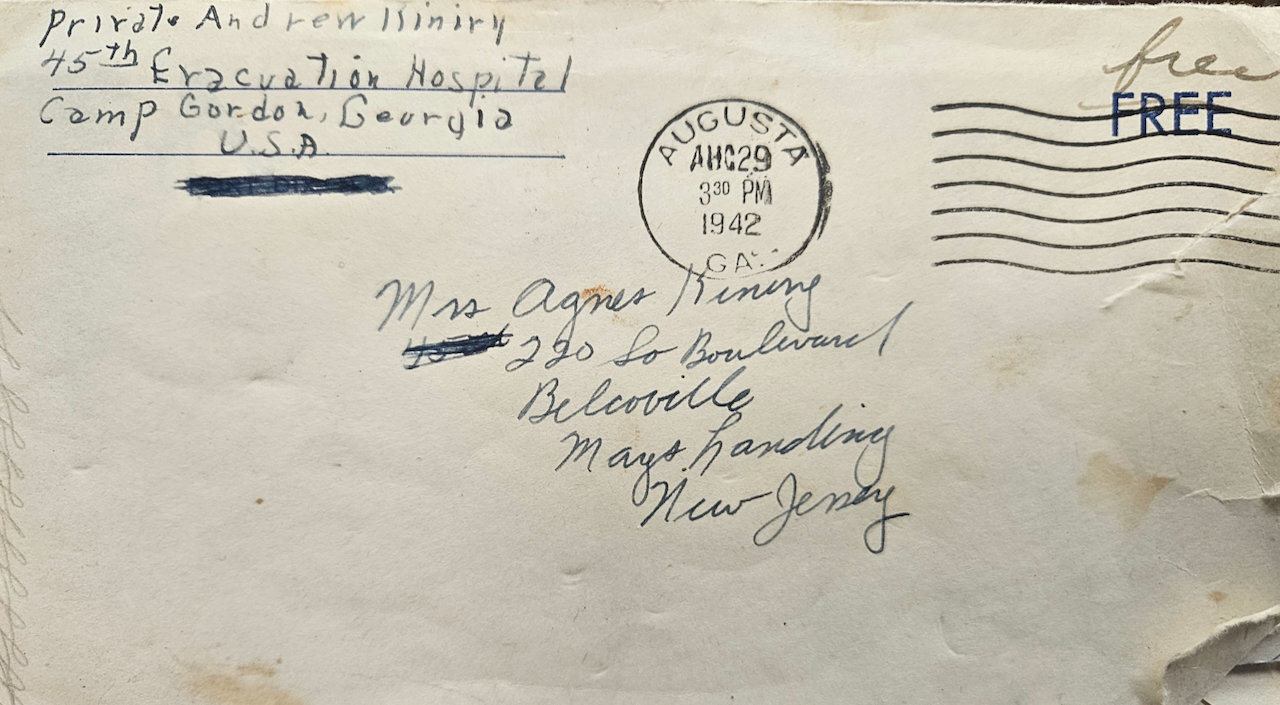 Private Andrew Kiniry
45th Evacuation Hospital
Camp Gordon, Georgia
U.S.A.
free
FREE
AUGUSTA
AUG 29
3 30 PM
1942
GA.
Mrs Agnes Kiniry
220 So Boulevard
Belcoville
Mays Landing
New Jersey